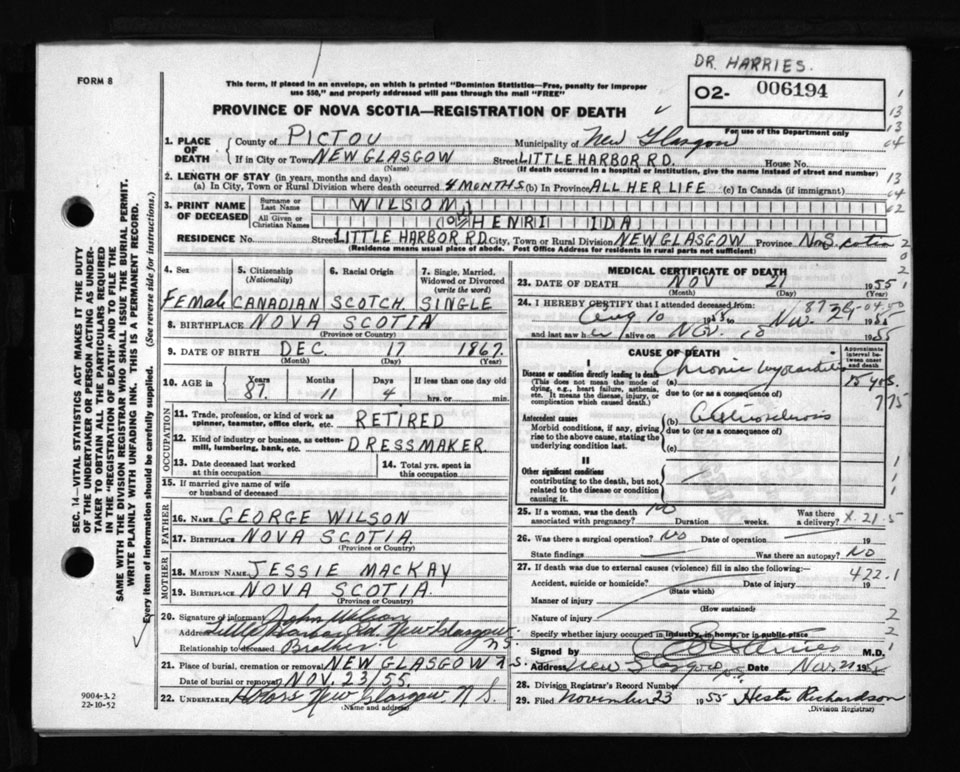 DR. HARRIES.
FORM 8
This form, if placed in an envelope, on which is printed "Dominion Statistics—Free, penalty for improper
use $50," and properly addressed will pass through the mail "FREE"
02- 006194
For use of the Department only
PROVINCE OF NOVA SCOTIA—REGISTRATION OF DEATH
1. PLACE OF DEATH
County of PICTOU Municipality of New Glasgow
If in City or Town NEW GLASGOW Street LITTLE HARBOR RD. House No.
(Name) (If death occurred in a hospital or institution, give the name instead of street and number)
2. LENGTH OF STAY (in years, months and days)
(a) In City, Town or Rural Division where death occurred 4 MONTHS (b) In Province ALL HER LIFE (c) In Canada (if immigrant)
3. PRINT NAME OF DECEASED
Surname or Last Name WILSON
All Given or Christian Names HENRI IDA
RESIDENCE No. Street LITTLE HARBOR RD. City, Town or Rural Division NEW GLASGOW Province
(Residence means usual place of abode. Post Office Address for residents in rural parts not sufficient)
4. Sex FEMale
5. Citizenship (Nationality) CANADIAN
6. Racial Origin SCOTCH
7. Single, Married, Widowed or Divorced (write the word) SINGLE
8. BIRTHPLACE NOVA SCOTIA
(Province or Country)
9. DATE OF BIRTH DEC. 17 1867
(Month) (Day) (Year)
10. AGE in Years 87 Months 11 Days 4 If less than one day old
hrs. or min.
OCCUPATION
11. Trade, profession, or kind of work as spinner, teamster, office clerk, etc. RETIRED
12. Kind of industry or business, as cotton-mill, lumbering, bank, etc. DRESSMAKER
13. Date deceased last worked at this occupation
14. Total yrs. spent in this occupation
15. If married give name of wife or husband of deceased
FATHER
16. NAME GEORGE WILSON
17. BIRTHPLACE NOVA SCOTIA
(Province or Country)
MOTHER
18. MAIDEN NAME JESSIE MACKAY
19. BIRTHPLACE NOVA SCOTIA.
(Province or Country)
20. Signature of informant John Wilson
Address Little Harbor Rd. New Glasgow NS
Relationship to deceased Brother
21. Place of burial, cremation or removal NEW GLASGOW N.S.
Date of burial or removal NOV. 23/55.
22. UNDERTAKER New Glasgow, N.S.
(Name and address)
MEDICAL CERTIFICATE OF DEATH
23. DATE OF DEATH NOV 21 1955
(Month) (Day) (Year)
24. I HEREBY CERTIFY that I attended deceased from:
Aug 10 1955 to Nov 1955
and last saw her alive on Nov. 1955
CAUSE OF DEATH
Approximate interval between onset and death
I
Disease or condition directly leading to death
(This does not mean the mode of dying, e.g., heart failure, asthenia, etc. It means the disease, injury, or complication which caused death.)
(a) Chronic Myocarditis yrs.
due to (or as a consequence of)
775
Antecedent causes
Morbid conditions, if any, giving rise to the above cause, stating the underlying condition last.
(b) Arteriosclerosis
due to (or as a consequence of)
(c)
II
Other significant conditions
contributing to the death, but not related to the disease or condition causing it.
25. If a woman, was the death associated with pregnancy? No Duration weeks. Was there a delivery? X.21.5
26. Was there a surgical operation? NO Date of operation 19
State findings Was there an autopsy? NO
27. If death was due to external causes (violence) fill in also the following: 422.1
Accident, suicide or homicide? Date of injury 19
(State which)
Manner of injury
(How sustained)
Nature of injury
Specify whether injury occurred in industry, in home, or in public place
Signed by Harries M.D.
Address New Glasgow Date Nov 21 1955
28. Division Registrar's Record Number
29. Filed November 23 1955 Hester Richardson
(Division Registrar)
SEC. 14—VITAL STATISTICS ACT MAKES IT THE DUTY
OF THE UNDERTAKER OR PERSON ACTING AS UNDER-
TAKER TO OBTAIN ALL THE PARTICULARS REQUIRED
IN THE "REGISTRATION OF DEATH" AND TO FILE THE
SAME WITH THE DIVISION REGISTRAR WHO SHALL ISSUE THE BURIAL PERMIT.
WRITE PLAINLY WITH UNFADING INK. THIS IS A PERMANENT RECORD.
Every item of information should be carefully supplied. (See reverse side for instructions.)
9004-3.2
22-10-52